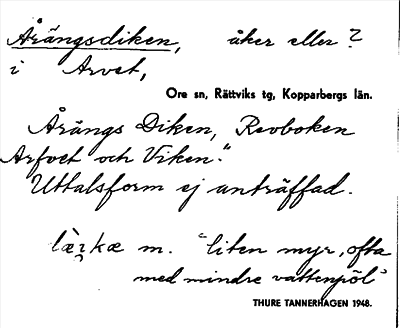 Årängsdiken, åker eller?
i Arvet,
Ore sn, Rättviks tg, Kopparbergs län.
Årängs Diken, Revboken
Arfvet och Viken."
Uttalsform ej anträffad.
m. "liten myr, ofta
med mindre vattenpöl"
THURE TANNERHAGEN 1948.